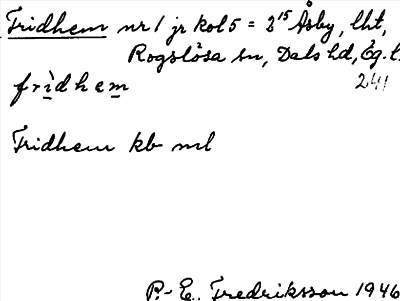 Fridhem nr 1 jr kol 5 = 3¹⁵ Åsby, lht,
Rogslösa sn, Dals hd, Ög. l.
frìdhem
241
Fridhem kb ml
P.-E. Fredriksson 1946